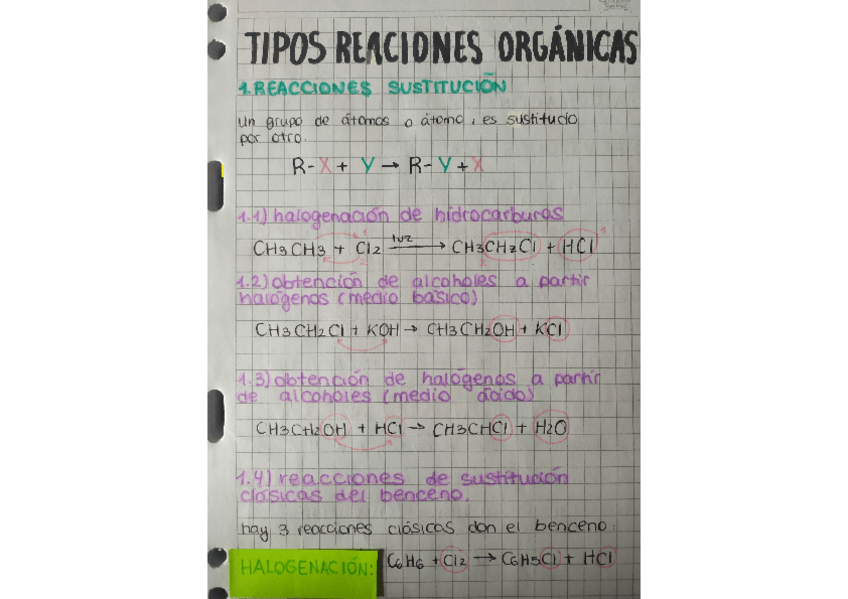 TIPOS REACIONES ORGÁNICAS
1. REACCIONES SUSTITUCIÓN
un grupo de átomos o átomo, es sustitucio
por otro.
R-X + Y → R-Y + X
1.1) halogenación de hidrocarburos
CH3CH3 + Cl2 luz → CH3CH2Cl + HCl
1.2) obtención de alcoholes a partir
halógenos (medio básico)
CH3CH2Cl + KOH → CH3CH2OH + KCl
1.3) obtención de halógenos a partir
de alcoholes (medio ácido)
CH3CH2OH + HCl → CH3CHCl + H2O
1.4) reacciones de sustitución
clásicas del benceno.
hay 3 reacciones clásicas con el benceno:
HALOGENACIÓN: C6H6 + Cl2 → C6H5Cl + HCl